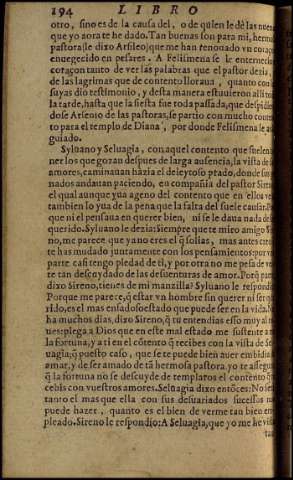 194 LIBRO
otro, sino es de la causa del, o de quien le dè las nueuas
que yo aora te he dado. Tan buenas son para mi, hermosa
pastora (le dixo Arsileo) que me han renouado vn coraçon
enuegecido en pesares. A Felismena se le enternecio el
coraçon tanto de ver las palabras que el pastor dezia,
de las lagrimas que de contento lloraua, quanto con las
suyas dio testimonio, y desta manera estuuieron alli toda
la tarde, hasta que la siesta fue toda passada, que despidien
dose Arsenio de las pastoras, se partio con mucho conten
to para el templo de Diana, por donde Felismena le auia
guiado.
Syluano y Seluagia, con aquel contento que suelen te
ner los que gozan despues de larga ausencia, la vista de sus
amores, caminauan házia el deleytoso prado, donde sus ga
nados andauan paciendo, en compañia del pastor Sireno
el qual aunque yua ageno del contento que en ellos veia
tambien lo yua de la pena que la falta del suele causar: Por
que ni el pensaua en querer bien, ni se le daua nada de no ser
querido. Syluano le dezia: Siempre que te miro amigo Sire
no, me parece que ya no eres el q̃ solias, mas antes creo que
te has mudado juntamente con los pensamientos: por vna
parte casi tengo piedad de ti, y por otra no me pesa de ver
te tan descuydado de las desuenturas de amor. Porq̃ parte
dixo Sireno, tienes de mi manzilla? Syluano le respondio:
Porque me parece, q̃ estar vn hombre sin querer ni ser que
rido, es el mas enfadoso estado que puede ser en la vida. No
ha muchos dias, dixo Sireno, q̃ tu entendias esso muy al re
ues: plega a Dios que en este mal estado me sustente a mi
la fortuna, y a ti en el cõtento q̃ recibes con la vista de Sel
uagia; q̃ puesto caso, que se te puede bien auer embidia de
amar, y de ser amado de tã hermosa pastora, yo te asseguro
q̃ la fortuna no se descuyde de templaros el contento q̃ re
cebis con vuestros amores. Seluagia dixo entõces: No sera
tanto el mas que ella con sus desuariados sucessos nos
puede hazer, quanto es el bien de verme tan bien em
pleado. Sireno le respondio: A Seluagia, que yo me he visto
tan